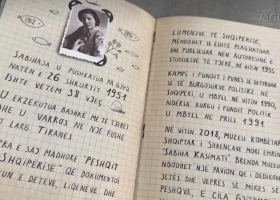 1912
SABIHAJA U PUSHKATUA PA GJYQ
NATËN E 26 SHKURTIT 1951
ISHTE VETËM 38 VJEÇ.
U EKZEKUTUA BASHKË ME TË TJERËT
DHE U VARROS NË NJË FUSHË
LARG TIRANËS
PRA E SAJ MADHORE "PESHQIT
SHQIPËRISË" QË DOKUMENTOI
E DETEVE, LIQENEVE DHE
LUMENJVE TË SHQIPËRISË,
MENDOHET SE ËSHTË PLAGJIATUAR
DHE PUBLIKUAR NËN AUTORËSINË E
STUDIUESVE TË TJERË, NË VITIN 1955
KAMPI I FUNDIT I PUNËS SË DETYRUAR
E TË BURGOSURVE POLITIKË NË
SHQIPËRI U MBYLL NË VITIN 1990
NDËRSA BURGU I FUNDIT POLITIK
U MBYLL NË PRILL 1991.
NË VITIN 2018, MUZEU KOMBËTAR
SHQIPTAR I SHKENCAVE MORI EMRIN
"SABIHA KASIMATI". BRENDA MUZEUT
NDODHET NJË PAVION QË I DEDIKOHET
JETËS DHE VEPRËS SË MIKES SË
PESHQVE, E CILA GJITHMONË